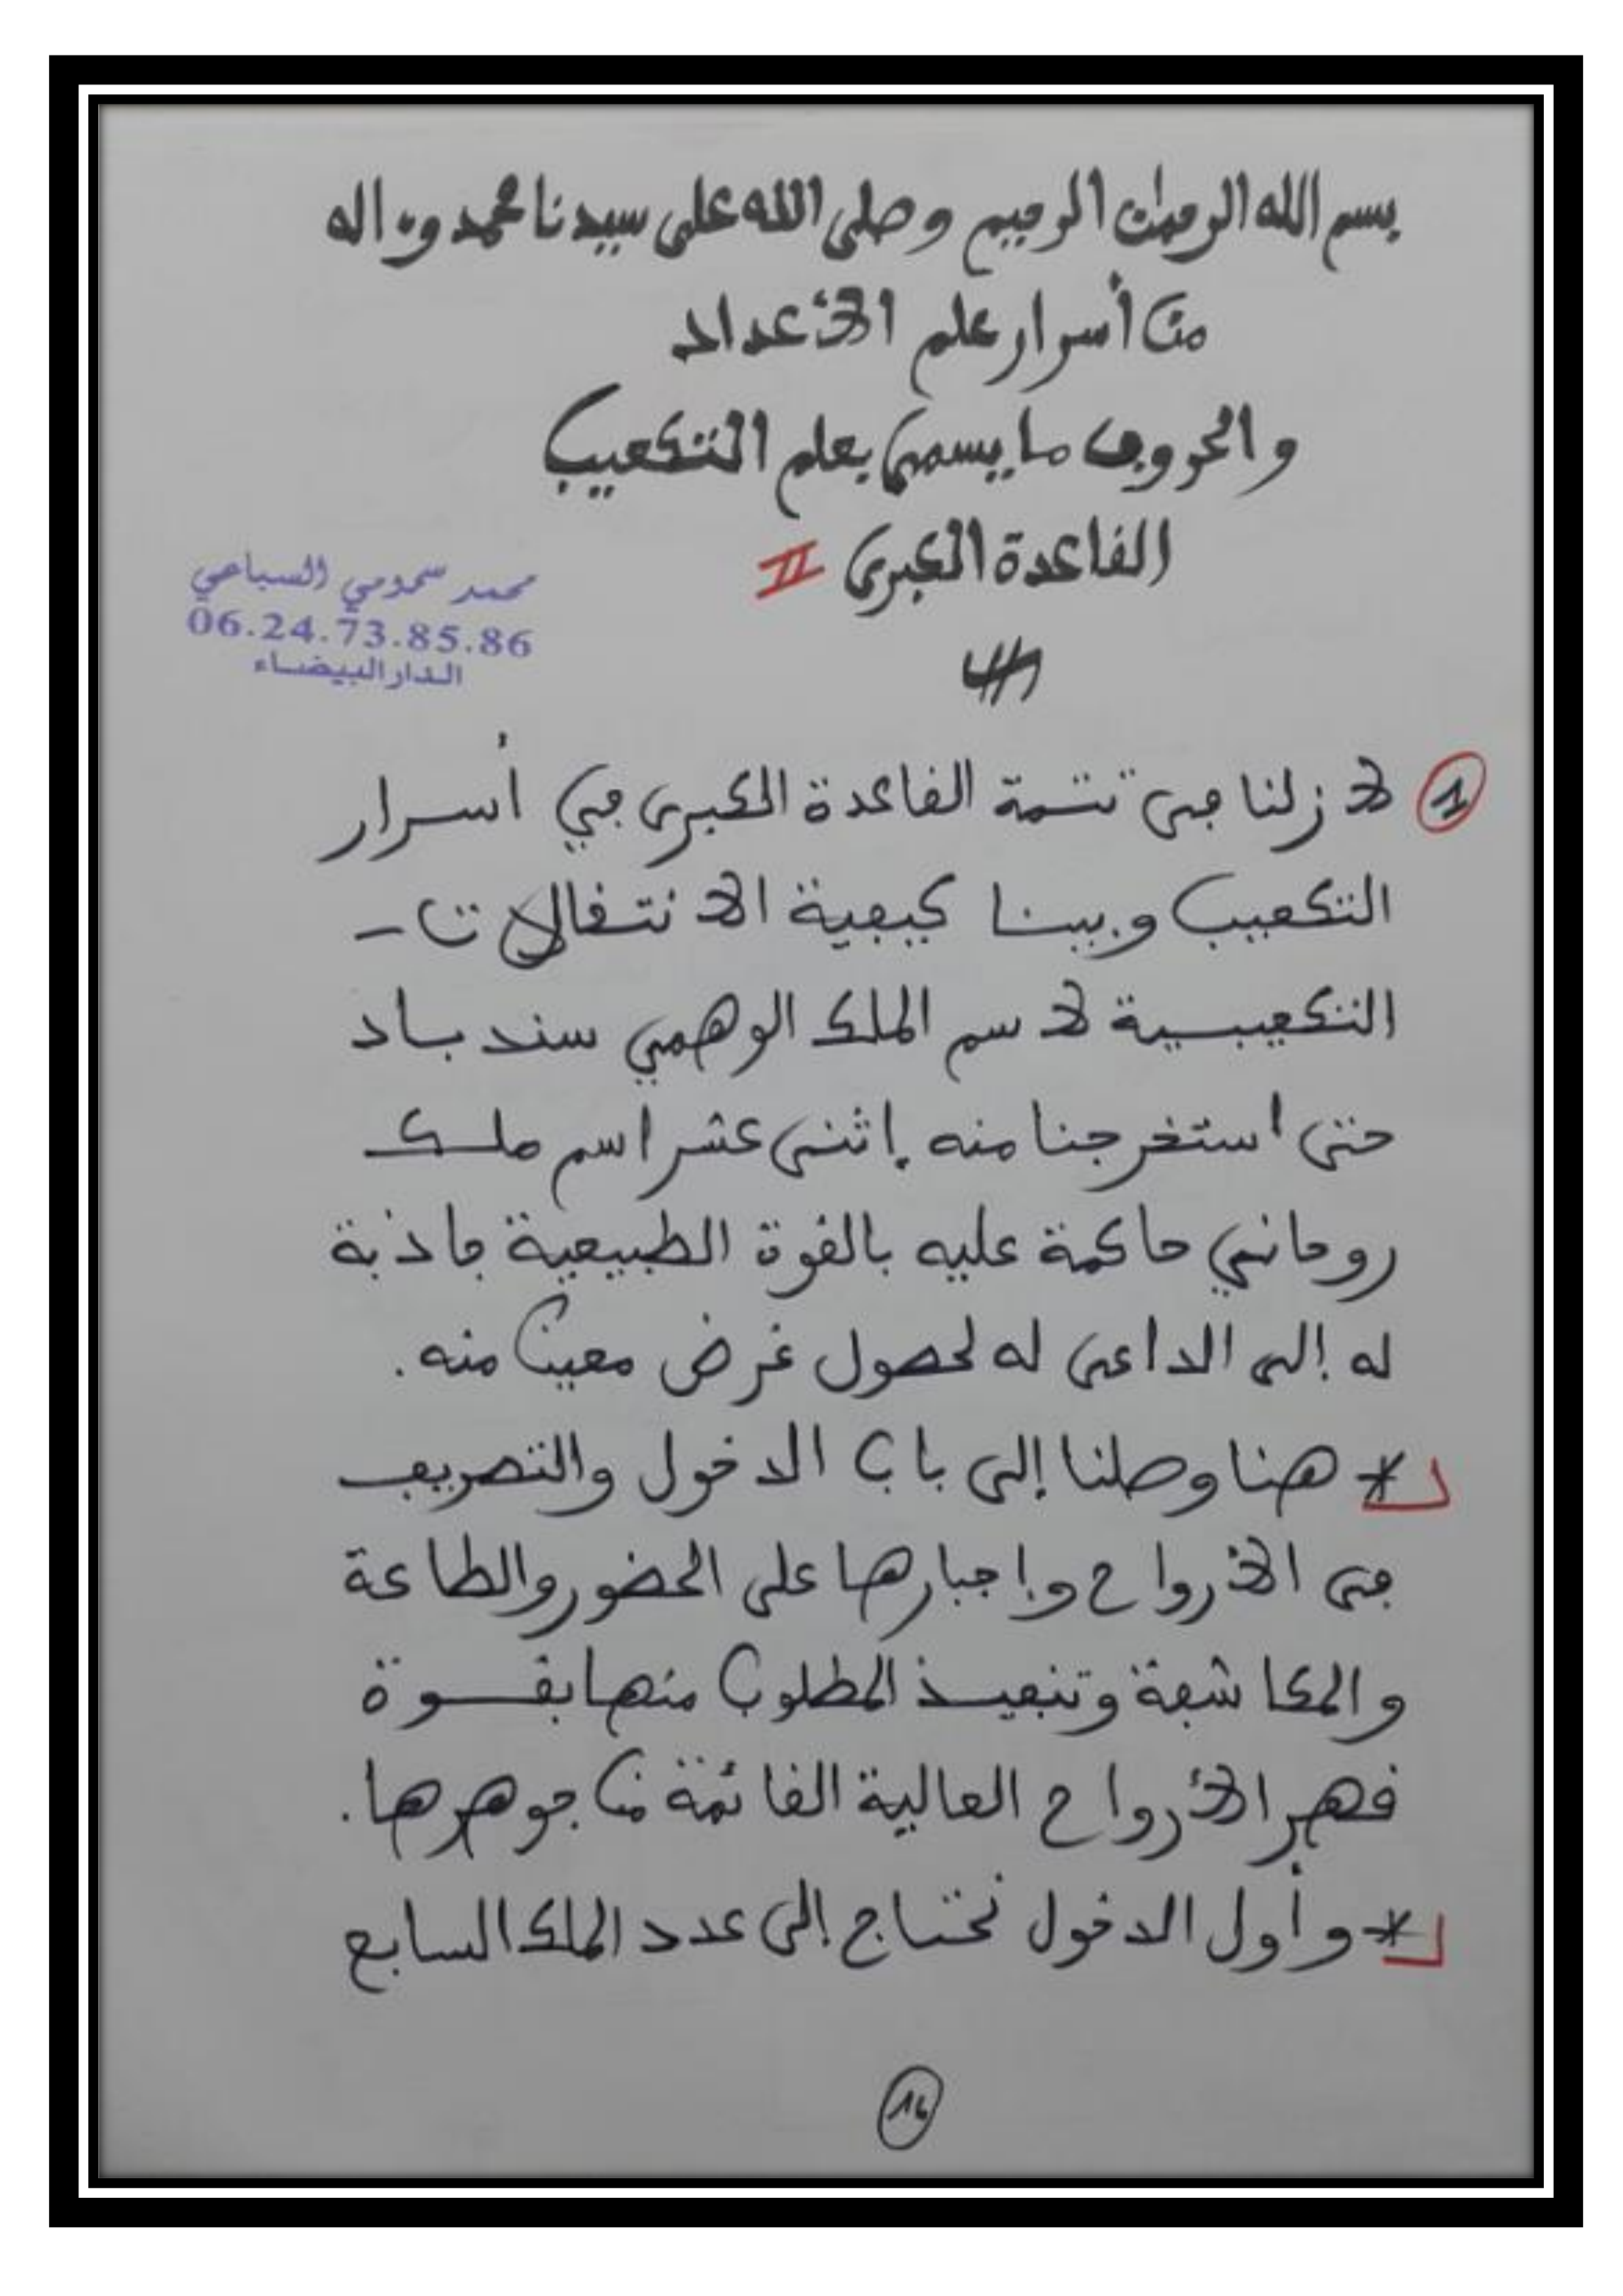 بسم الله الرحمان الرحيم وصلى الله على سيدنا محمد وءاله
من أسرار علم الأعداد
والحروف ما يسمى بعلم التكعيب
القاعدة الكبرى II
محمد سمومي السباعي
06.24.73.85.86
الدار البيضاء
1 لا زلنا في تتمة القاعدة الكبرى في أسرار
التكعيب وبينا كيفية الانتقالات
التكعيبية لاسم الملك الوهمي سندباد
حتى استخرجنا منه إثنى عشر اسم ملك
روحاني حاكمة عليه بالقوة الطبيعية جاذبة
له إلى الداعى له لحصول غرض معين منه.
* هنا وصلنا إلى باب الدخول والتصريف
في الأرواح وإجبارها على الحضور والطاعة
والمكاشفة وتنفيذ المطلوب منها بقوة
قهر الأرواح العالية القائمة من جوهرها.
* وأول الدخول نحتاج إلى عدد الملك السابع
16